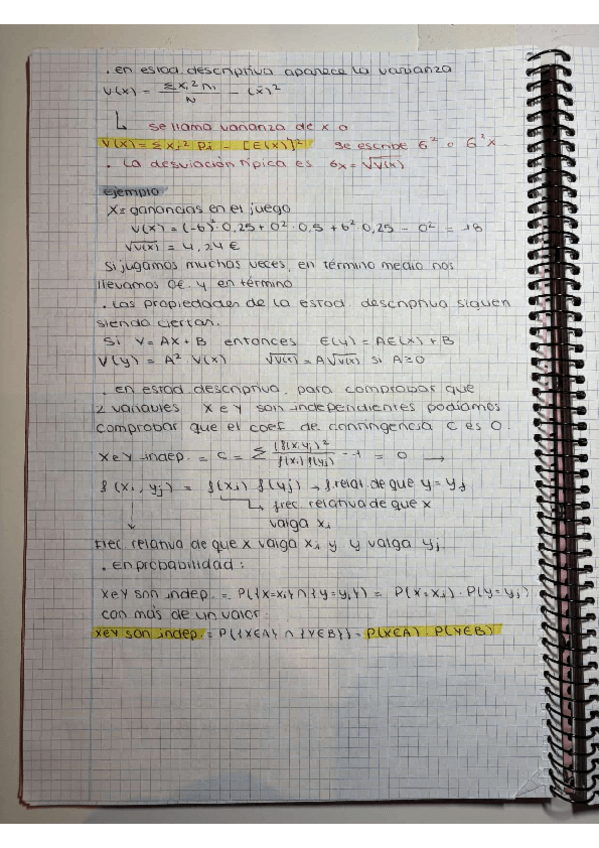 . en estad. descriptiva aparece la varianza
V(x) = Σxi² ni / N - (x̄)²
↳ se llama varianza de x o
V(x) = Σ xi² Pi - [E(x)]² se escribe 6² o 6²x
. La desviación típica es 6x = √V(x)
ejemplo
X = ganancias en el juego
V(x) = (-6)² · 0,25 + 0² · 0,5 + 6² 0,25 - 0² = 18
√V(x) = 4,24 €
Si jugamos muchas veces, en término medio nos
llevamos 0€. y en término
. Las propiedades de la estad. descriptiva siguen
siendo ciertas.
Si Y = AX + B entonces E(y) = AE(x) + B
V(y) = A² V(x) √V(y) = A√V(x) si A≥0
. en estad. descriptiva, para comprobar que
2 variables X e Y son independientes podíamos
comprobar que el coef. de contingencia C es 0.
X e Y indep. = C = Σ f(xi yj)² / f(xi) f(yj) - 1 = 0 →
f(xi, yj) = f(xi) f(yj) → f. relat. de que y = yj
↓ ↳ frec. relativa de que x
valga xi
Frec. relativa de que x valga xi y y valga yj
. en probabilidad:
X e Y son indep. = P({x=xi} ∩ {y=yj}) = P(x=xi) · P(y=yj)
con más de un valor:
X e Y son indep. = P({X∈A} ∩ {Y∈B}) = P(X∈A) · P(Y∈B)